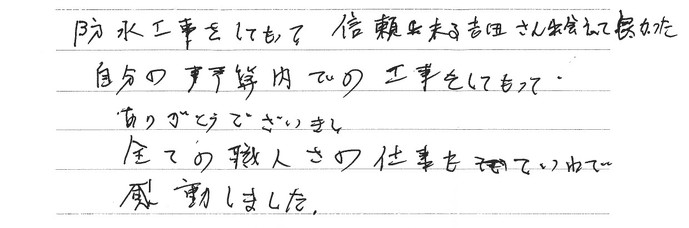 防水工事をしてもって 信頼出来る吉田さん出会えて良かった
自分の予算内での工事をしてもって.
ありがとうございまし
全ての職人さの仕事も ていねいで
感動しました.